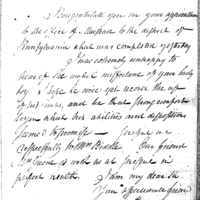 I congratulate you on your appointment
to the office of Marshall to the district of
Pennsylvania which was completed yesterday
I was extremely unhappy to
hear of the misfortune of your lovely
boy I hope he will yet recover the use
of his limbs, and be that strong comfort
to you which his abilities and dispositions
seemed to promise — present me
respectfully to Mrs Biddle Our friend
is with us at present in
perfect health. I am my dear
Your affectionate friend